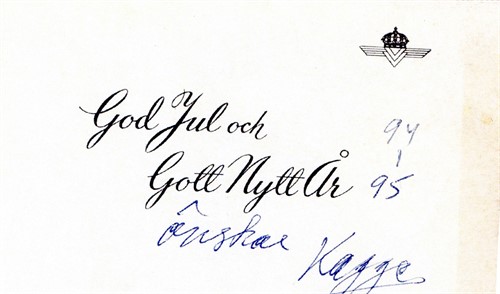 God Jul och
94
Gott Nytt År 95
önskar Kagge